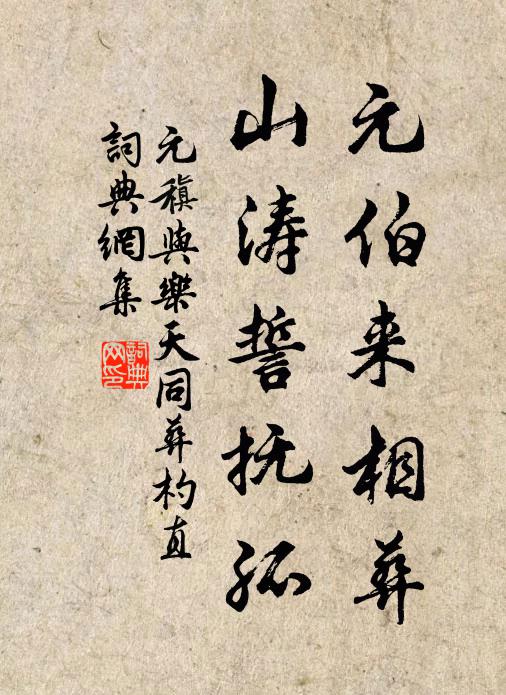 元伯来相葬
山涛誓抚孤
元稹與樂天同葬杓直
詞典網集
詞典网印